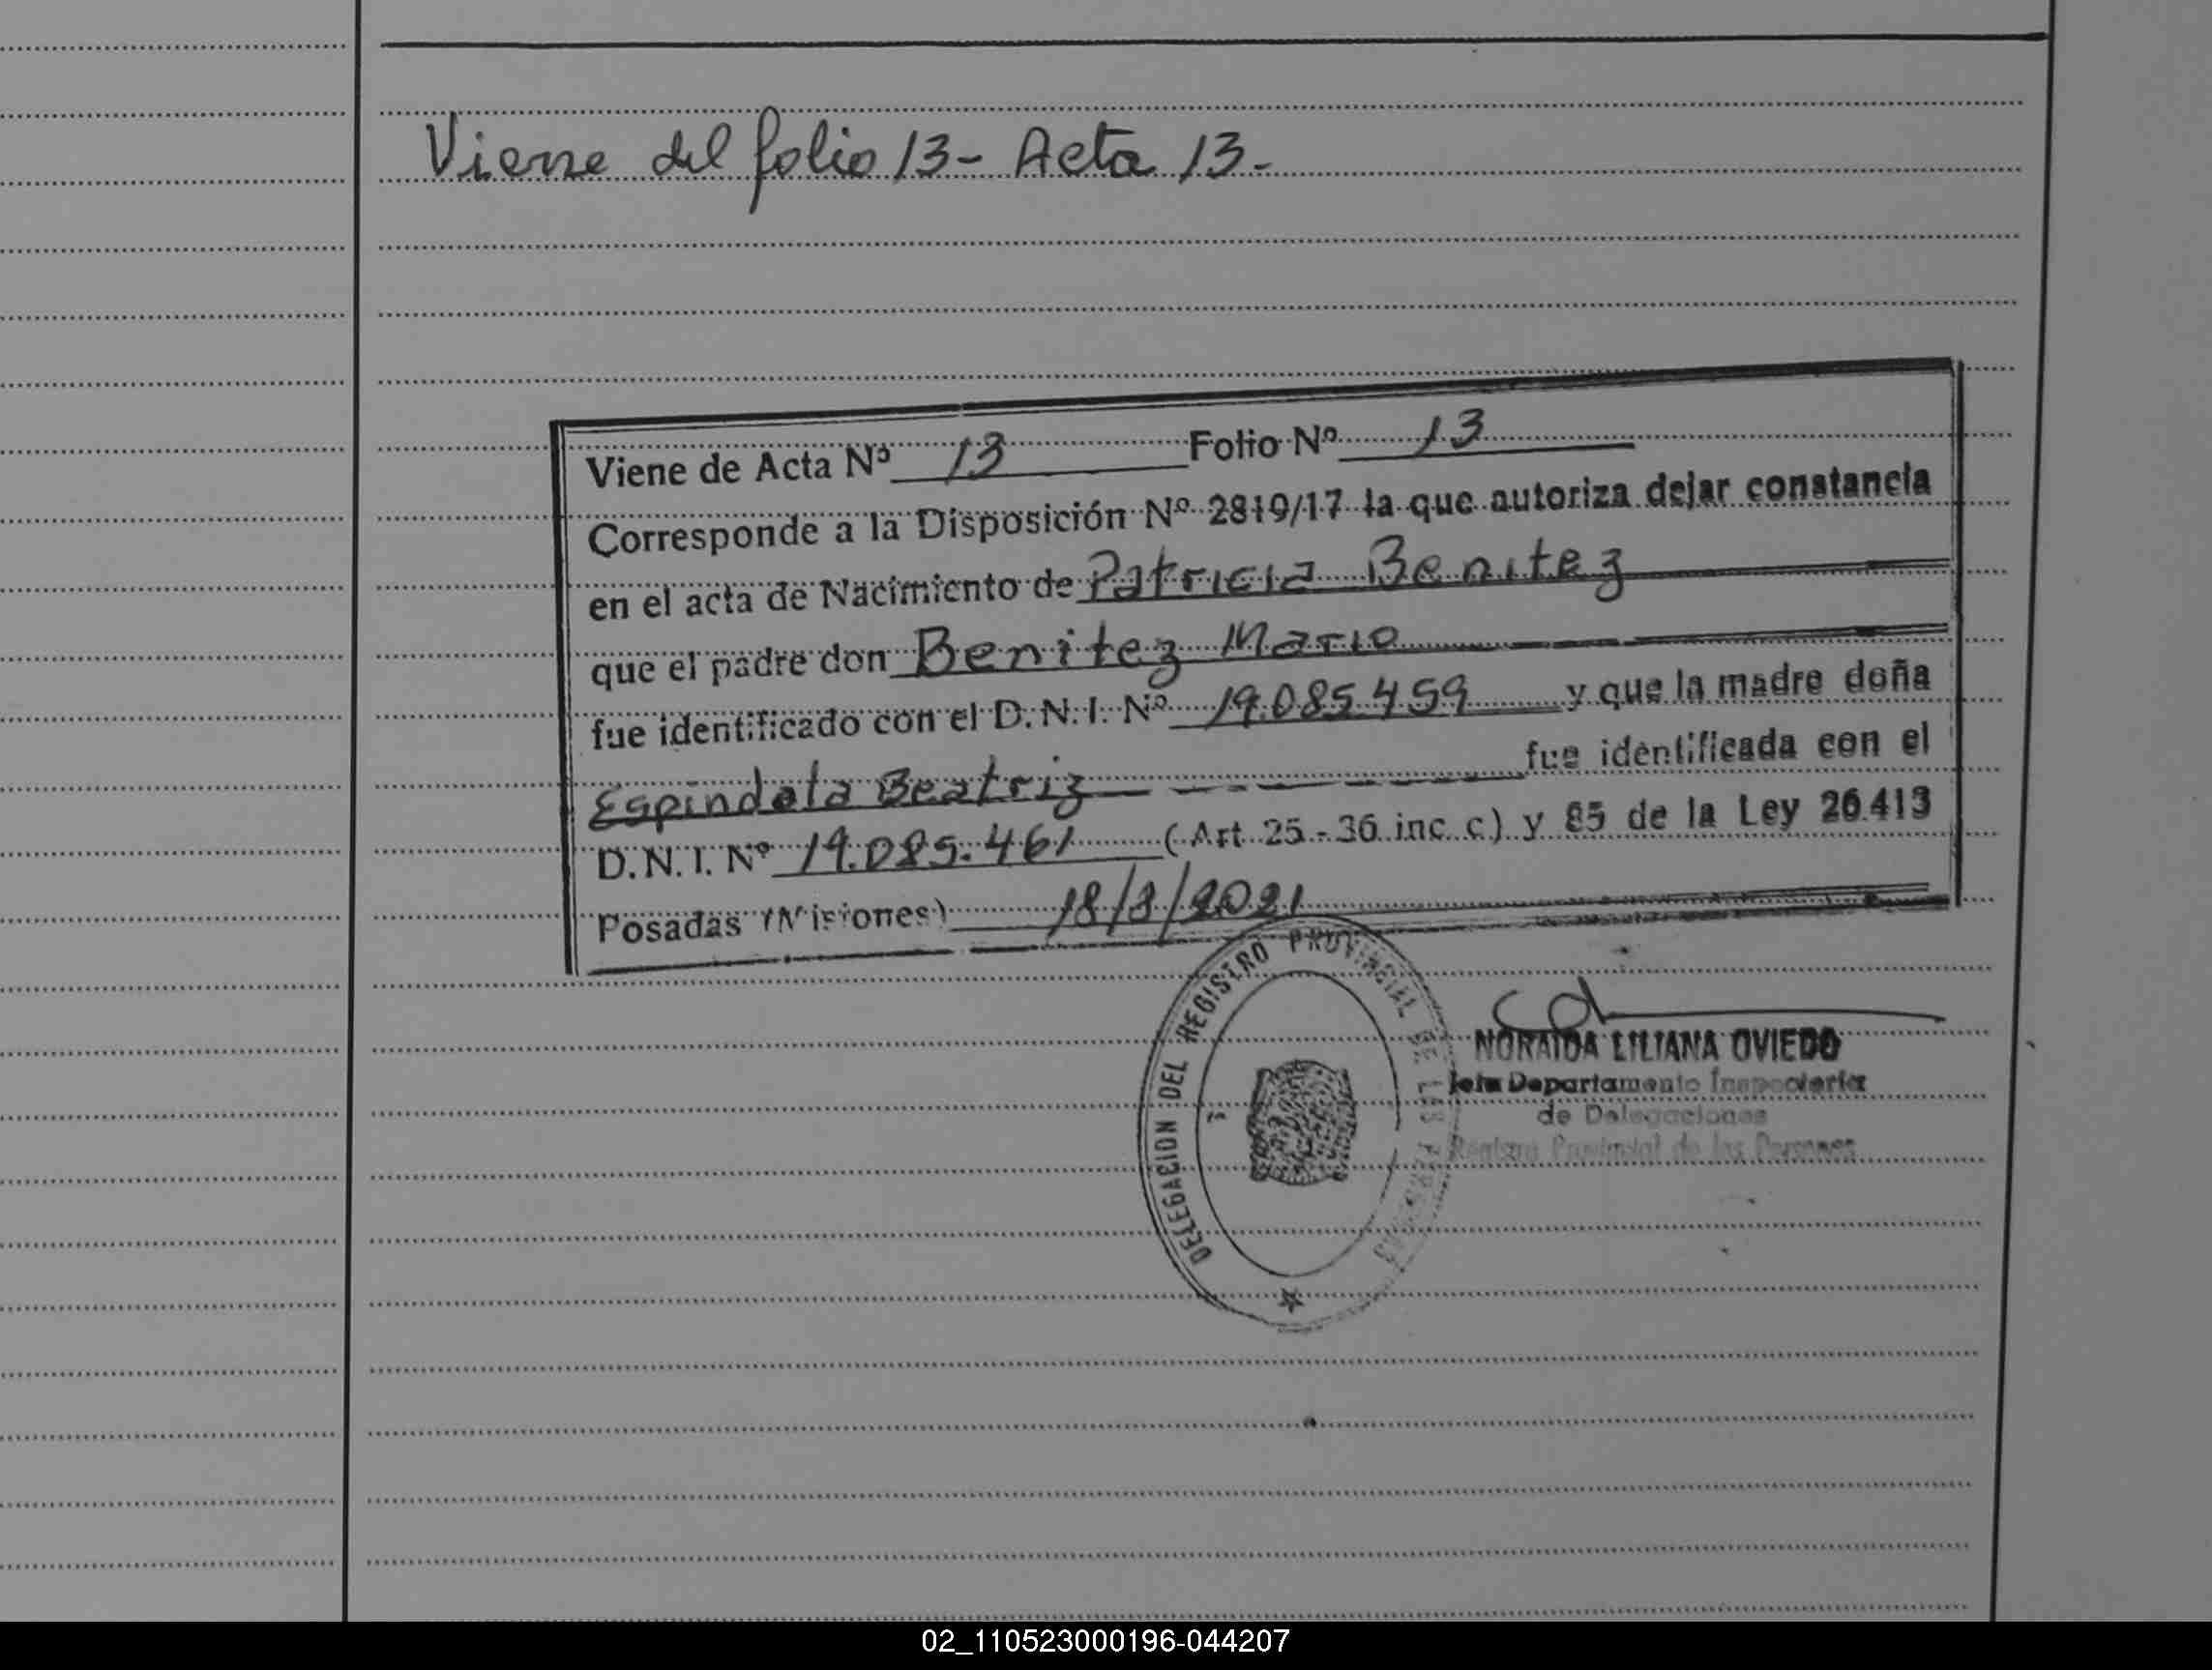 Viene del folio 13- Acta 13-
Viene de Acta Nº 13 Folio Nº 13
Corresponde a la Disposición Nº 2819/17 la que autoriza dejar constancia
en el acta de Nacimiento de Patricia Benitez
que el padre don Benitez Mario
fue identificado con el D.N.I. Nº 19.085.459 y que la madre doña
Espindola Beatriz fue identificada con el
D.N.I. Nº 19.085.461 (Art 25-36 inc c) y 85 de la Ley 26.413
Posadas (Misiones) 18/3/2021
DELEGACION DEL REGISTRO PROVINCIAL DE LAS PERSONAS
NORAIDA LILIANA OVIEDO
Jefa Departamento Inspectoria
de Delegaciones
Registro Provincial de las Personas
02_110523000196-044207